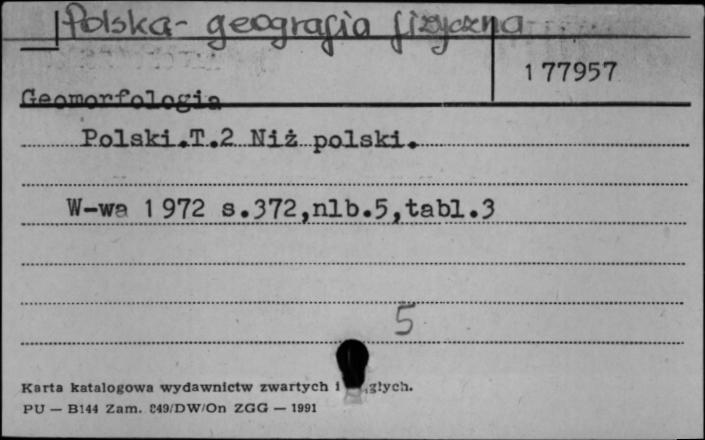 Polska - geografia fizyczna
177957
Geomorfologia
Polski.T.2 Niż polski.
W-wa 1972 s.372,nlb.5,tabl.3
5
Karta katalogowa wydawnictw zwartych i głych.
PU — B144 Zam. 849/DW/On ZGG — 1991